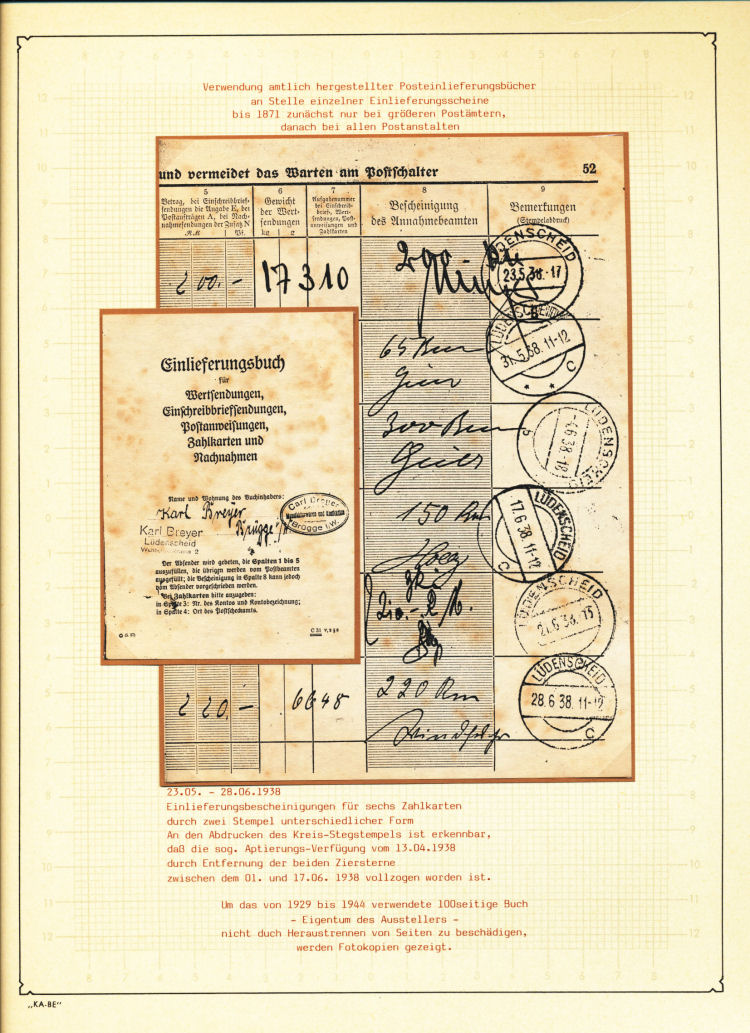 Verwendung amtlich hergestellter Posteinlieferungsbücher
an Stelle einzelner Einlieferungsscheine
bis 1871 zunächst nur bei größeren Postämtern,
danach bei allen Postanstalten
und vermeidet das Warten am Postschalter 52
5
Betrag, bei Einschreibbrief-
sendungen die Angabe E, bei
Postaufträgen A, bei Nach-
nahmesendungen der Zusatz N
RM Pf.
6
Gewicht
der Wert-
sendungen
kg g
7
Aufgabenummer
bei Einschreib-
briefs, Wert-
sendungen, Post-
anweisungen und
Zahlkarten
8
Bescheinigung
des Annahmebeamten
9
Bemerkungen
(Stempelabdruck)
200.- 17 310 200 Rm
LÜDENSCHEID
23.5.38.-17
LÜDENSCHEID
31.5.38.11-12
* * C
65 Rm
300 Rm
LÜDENSCHEID
-4.6.38.-18
b
150 Rm
LÜDENSCHEID
17.6.38.11-12
C
210.- R/M.
LÜDENSCHEID
21.6.38.-15
220.- 6648 220 Rm
LÜDENSCHEID
28.6.38.11-12
C
Einlieferungsbuch
für
Wertsendungen,
Einschreibbriefsendungen,
Postanweisungen,
Zahlkarten und
Nachnahmen
Name und Wohnung des Buchinhabers:
Karl Breyer
Brügge i/W
Karl Breyer
Lüdenscheid
Carl Breyer
Manufakturwaren und Konfektion
Brügge i.W.
Der Absender wird gebeten, die Spalten 1 bis 5
auszufüllen, die übrigen werden vom Postbeamten
ausgefüllt; die Bescheinigung in Spalte 8 kann jedoch
vom Absender vorgeschrieben werden.
Bei Zahlkarten bitte anzugeben:
in Spalte 3: Nr. des Kontos und Kontobezeichnung;
in Spalte 4: Ort des Postscheckamts.
C 31
23.05. - 28.06.1938
Einlieferungsbescheinigungen für sechs Zahlkarten
durch zwei Stempel unterschiedlicher Form
An den Abdrucken des Kreis-Stegstempels ist erkennbar,
daß die sog. Aptierungs-Verfügung vom 13.04.1938
durch Entfernung der beiden Ziersterne
zwischen dem 01. und 17.06. 1938 vollzogen worden ist.
Um das von 1929 bis 1944 verwendete 100seitige Buch
- Eigentum des Ausstellers -
nicht duch Heraustrennen von Seiten zu beschädigen,
werden Fotokopien gezeigt.
„KA-BE“